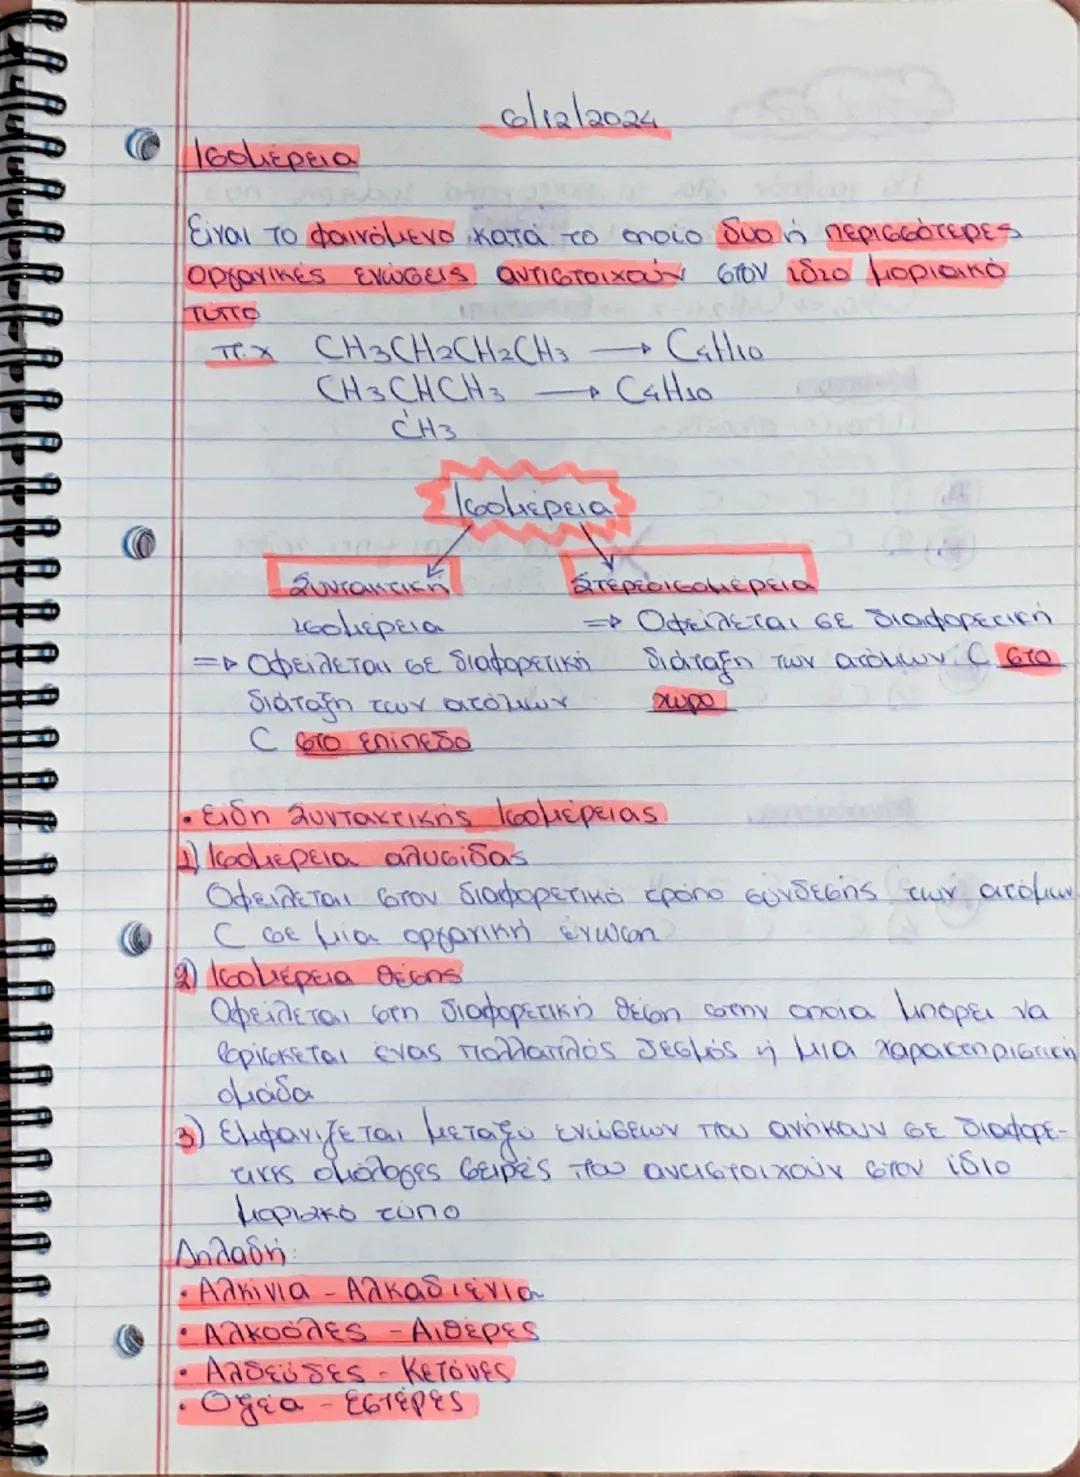 6/12/2024
Ισομέρεια
Είναι το φαινόμενο κατά το οποίο δυο ή περισσότερες
οργανικές ενώσεις αντιστοιχούν στον ίδιο μοριακό
τύπο
π.χ CH3CH2CH2CH3 → C4H10
CH3CHCH3 → C4H10
CH3
Ισομέρεια
Συντακτική
ισομέρεια
⇒ Οφείλεται σε διαφορετική
διάταξη των ατόμων
C στο επίπεδο
Στερεοισομέρεια
⇒ Οφείλεται σε διαφορετική
διάταξη των ατόμων C στο
χώρο
• Είδη Συντακτικής Ισομέρειας
1) Ισομέρεια αλυσίδας
Οφείλεται στον διαφορετικό τρόπο σύνδεσης των ατόμων
C σε μία οργανική ένωση
2) Ισομέρεια θέσης
Οφείλεται στη διαφορετική θέση στην οποία μπορεί να
βρίσκεται ένας πολλαπλός δεσμός ή μια χαρακτηριστική
ομάδα
3) Εμφανίζεται μεταξύ ενώσεων που ανήκουν σε διαφορε-
τικές ομόλογες σειρές που αντιστοιχούν στον ίδιο
μοριακό τύπο
Δηλαδή:
• Αλκίνια - Αλκαδιένια
• Αλκοόλες - Αιθέρες
• Αλδεύδες - Κετόνες
• Οξέα - Εστέρες